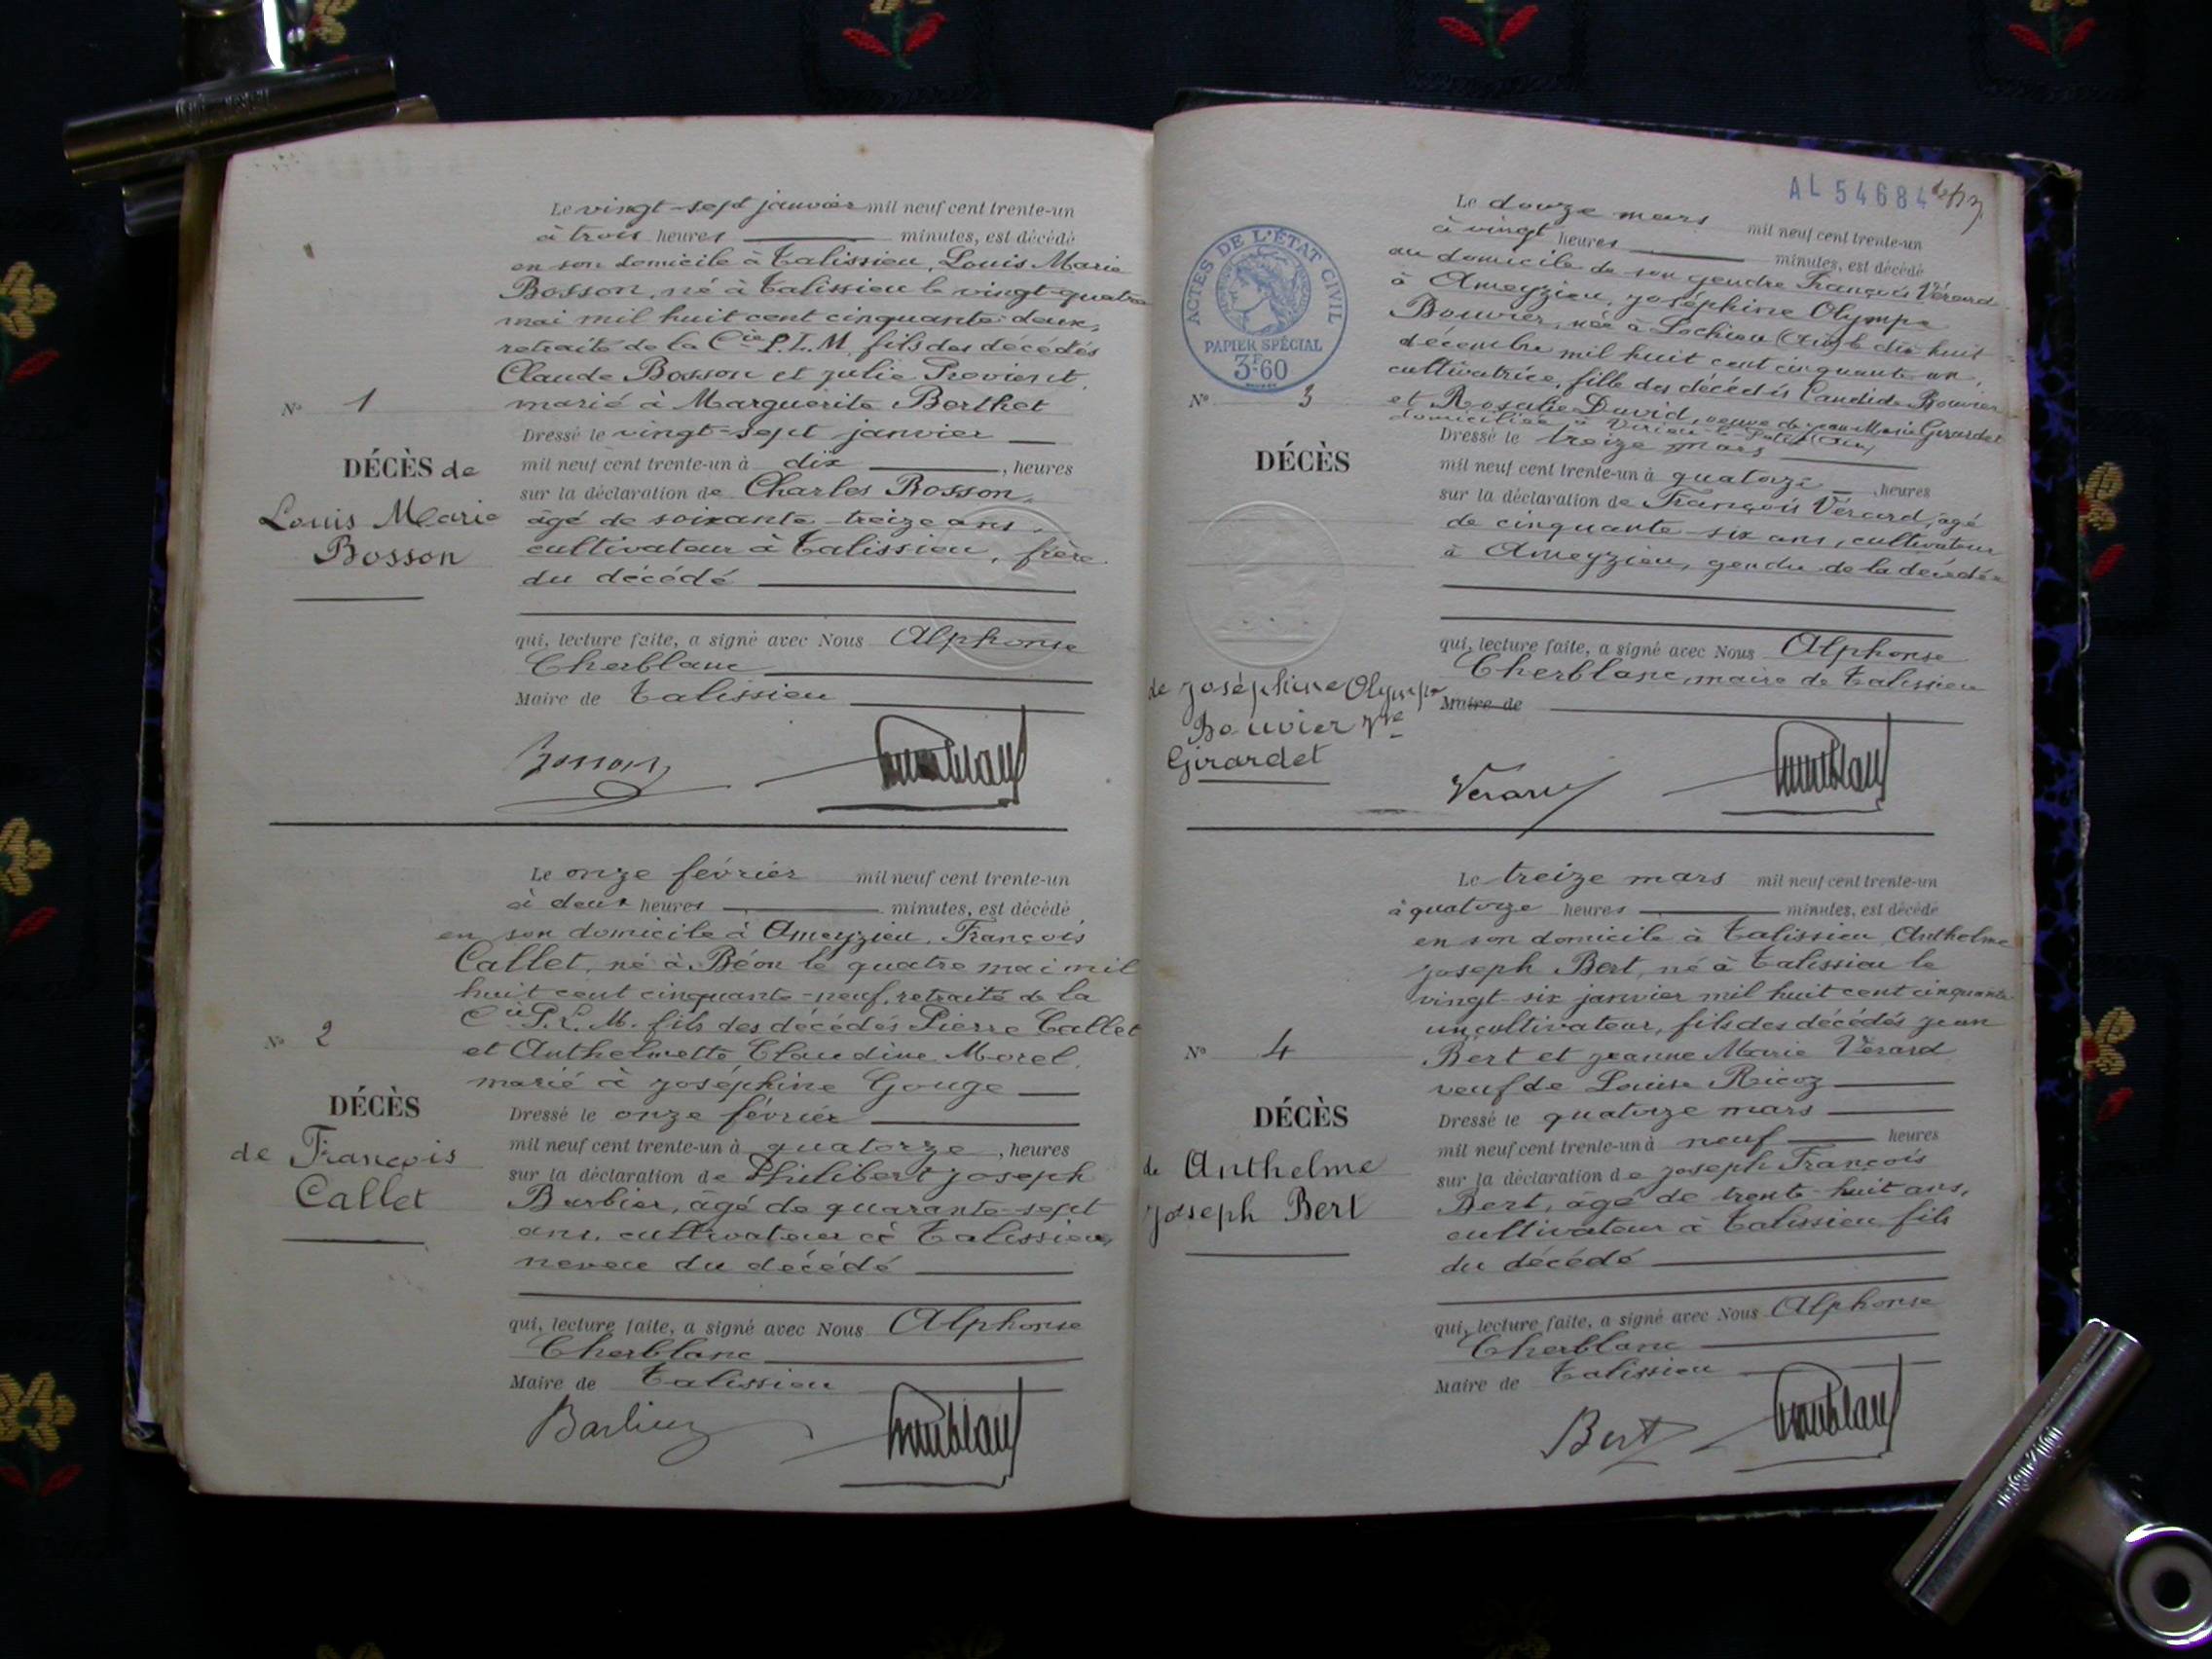 Le vingt-sept janvier mil neuf cent trente-un
à trois heures minutes, est décédé
en son domicile à Talissieu, Louis Marie
Bosson, né à Talissieu le vingt-quatre
mai mil huit cent cinquante-deux,
retraité de la Cie P.L.M, fils des décédés
Claude Bosson et Julie Previent,
N° 1
marié à Marguerite Berthet
Dressé le vingt-sept janvier
DÉCÈS de
Louis Marie
Bosson
mil neuf cent trente-un à dix , heures
sur la déclaration de Charles Bosson,
âgé de soixante-treize ans,
cultivateur à Talissieu, frère
du décédé
qui, lecture faite, a signé avec Nous Alphonse
Cherblanc
Maire de Talissieu
Bosson
Cherblanc
Le onze février mil neuf cent trente-un
à deux heures minutes, est décédé
en son domicile à Ameyzieu, François
Callet, né à Béon le quatre mai mil
huit cent cinquante-neuf, retraité de la
Cie P.L.M. fils des décédés Pierre Callet
N° 2
et Anthelmette Claudine Morel,
marié à Joséphine Gouge
DÉCÈS
de François
Callet
Dressé le onze février
mil neuf cent trente-un à quatorze , heures
sur la déclaration de Philibert Joseph
Barbier, âgé de quarante-sept
ans, cultivateur à Talissieu,
neveu du décédé
qui, lecture faite, a signé avec Nous Alphonse
Cherblanc
Maire de Talissieu
Barbier
Cherblanc
AL 54684
ACTES DE L'ÉTAT CIVIL
PAPIER SPÉCIAL
3F60
Le douze mars mil neuf cent trente-un
à vingt heures minutes, est décédé
au domicile de son gendre François Vérard
à Ameyzieu, Joséphine Olympe
Bouvier, née à Lochieu (Ain) le dix huit
décembre mil huit cent cinquante un,
cultivatrice, fille des décédés Candide Bouvier
N° 3
et Rosalie David, veuve de Jean Marie Girardet
domiciliée à Virieu-le-Petit (Ain)
Dressé le treize mars
DÉCÈS
de Joséphine Olympe
Bouvier Vve
Girardet
mil neuf cent trente-un à quatorze , heures
sur la déclaration de François Vérard, âgé
de cinquante-six ans, cultivateur
à Ameyzieu, gendre de la décédée
qui, lecture faite, a signé avec Nous Alphonse
Cherblanc, maire de Talissieu
Maire de
Verard
Cherblanc
Le treize mars mil neuf cent trente-un
à quatorze heures minutes, est décédé
en son domicile à Talissieu Anthelme
Joseph Bert, né à Talissieu le
vingt-six janvier mil huit cent cinquante
un, cultivateur, fils des décédés Jean
N° 4
Bert et Jeanne Marie Vérard
veuf de Louise Ricoz
DÉCÈS
de Anthelme
Joseph Bert
Dressé le quatorze mars
mil neuf cent trente-un à neuf heures
sur la déclaration de Joseph François
Bert, âgé de trente-huit ans,
cultivateur à Talissieu fils
du décédé
qui, lecture faite, a signé avec Nous Alphonse
Cherblanc
Maire de Talissieu
Bert
Cherblanc